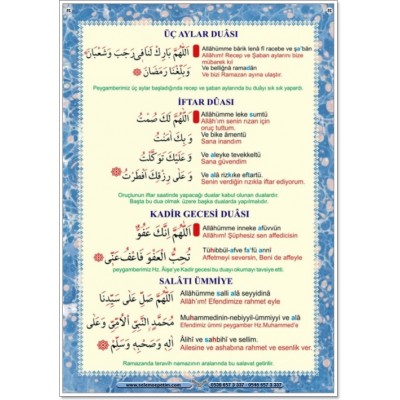 ÜÇ AYLAR DUÂSI
اَللّٰهُمَّ بَارِكْ لَنَا فِى رَجَبَ وَشَعْبَانَ
Allâhümme bârik lenâ fî racebe ve şa'bân
Allâhım! Recep ve Şaban aylarını bize
mübarek kıl
وَبَلِّغْنَا رَمَضَانَ
Ve belliğnâ ramadân
Ve bizi Ramazan ayına ulaştır.
Peygamberimiz üç aylar başladığında recep ve şaban aylarında bu duâyı sık sık yapardı.
İFTAR DÛASI
اَللّٰهُمَّ لَكَ صُمْتُ
Allâhümme leke sumtü
Allâh'ım senin rızan için
oruç tuttum.
وَ بِكَ اٰمَنْتُ
Ve bike âmentü
Sana inandım
وَ عَلَيْكَ تَوَكَّلْتُ
Ve aleyke tevekkeltü
Sana güvendim
وَ عَلٰى رِزْقِكَ اَفْطَرْتُ
Ve alâ rizkıke eftartü.
Senin verdiğin rızıkla iftar ediyorum.
Oruçlunun iftar saatinde yapacağı dualar kabul olunan dualardandır.
Başta bu dua olmak üzere başka dualarda yapılmalıdır.
KADİR GECESİ DUÂSI
اَللّٰهُمَّ اِنَّكَ عَفُوٌّ
Allâhümme inneke afüvvün
Allâh'ım! Şüphesiz sen affedicisin
تُحِبُّ الْعَفْوَ فَاعْفُ عَنِّى
Tühibbül-afve fa'fü annî
Affetmeyi seversin, Beni de affeyle
peygamberimiz Hz. Âişe'ye Kadir gecesi bu duayı okumayı tavsiye etti.
SALÂTI ÜMMİYE
اَللّٰهُمَّ صَلِّ عَلٰى سَيِّدِنَا
Allâhümme salli alâ seyyidinâ
Allâh'ım! Efendimize rahmet eyle
مُحَمَّدٍ النَّبِىِّ الْاُمِّىِّ وَعَلٰى
Muhammedinin-nebiyyil-ümmiyyi ve alâ
Efendimiz ümmi peygamber Hz.Muhammed'e
اٰلِهِ وَصَحْبِهِ وَسَلِّمْ
Âlihî ve sahbihî ve sellim.
Ailesine ve ashabına rahmet ve esenlik ver.
Ramazanda teravih namazının aralarında bu salavat getirilir.